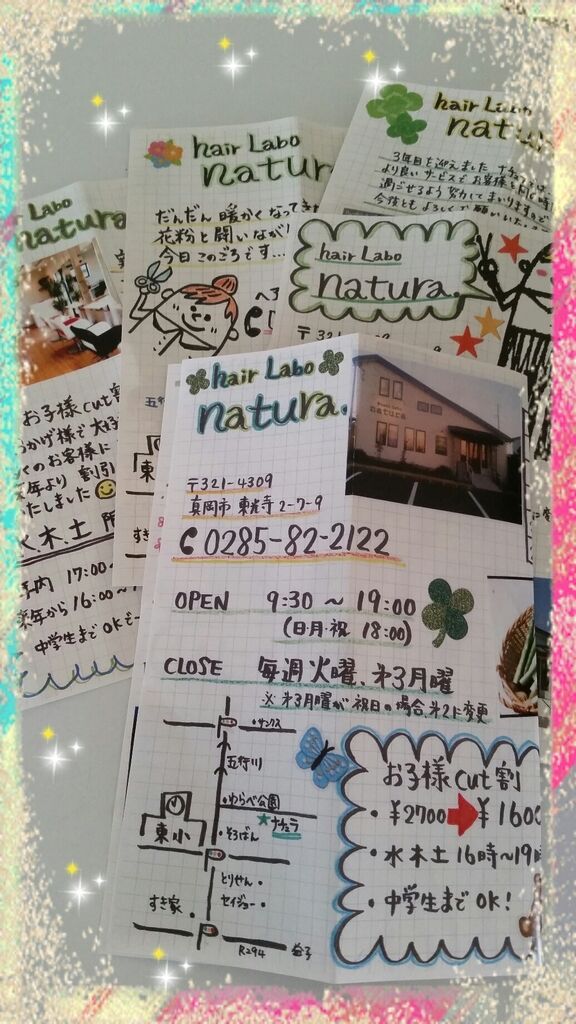 hair Labo
natur
3年目を迎えました
より良いサービスでお客様と
過ごせるよう努力してまいりますので
今後ともよろしくお願いいた
hair Labo
natur
だんだん暖かくなってき
花粉と闘いなが
今日このごろです...
hair Labo
natura.
〒321-
Labo
natura
お子様cut割
おかげ様で
くのお客様に
年より割引
たしました
水、木、土
内 17:00~
年から16:00~
中学生までOK
五行
東
すき家
hair Labo
natura.
natura
〒321-4309
真岡市 東光寺 2-7-9
0285-82-2122
OPEN 9:30 ~ 19:00
(日・月・祝 18:00)
CLOSE 毎週火曜、第3月曜
※第3月曜が祝日の場合、第2に変更
・サンクス
五行川
・ゆらべ公園
★ナチュラ
東小
・そろばん
とりせん・
セイジョー・
すき家・
R294 益子
お子様cut割
・¥2700➡¥160
・水木土16時~19時
・中学生までOK!